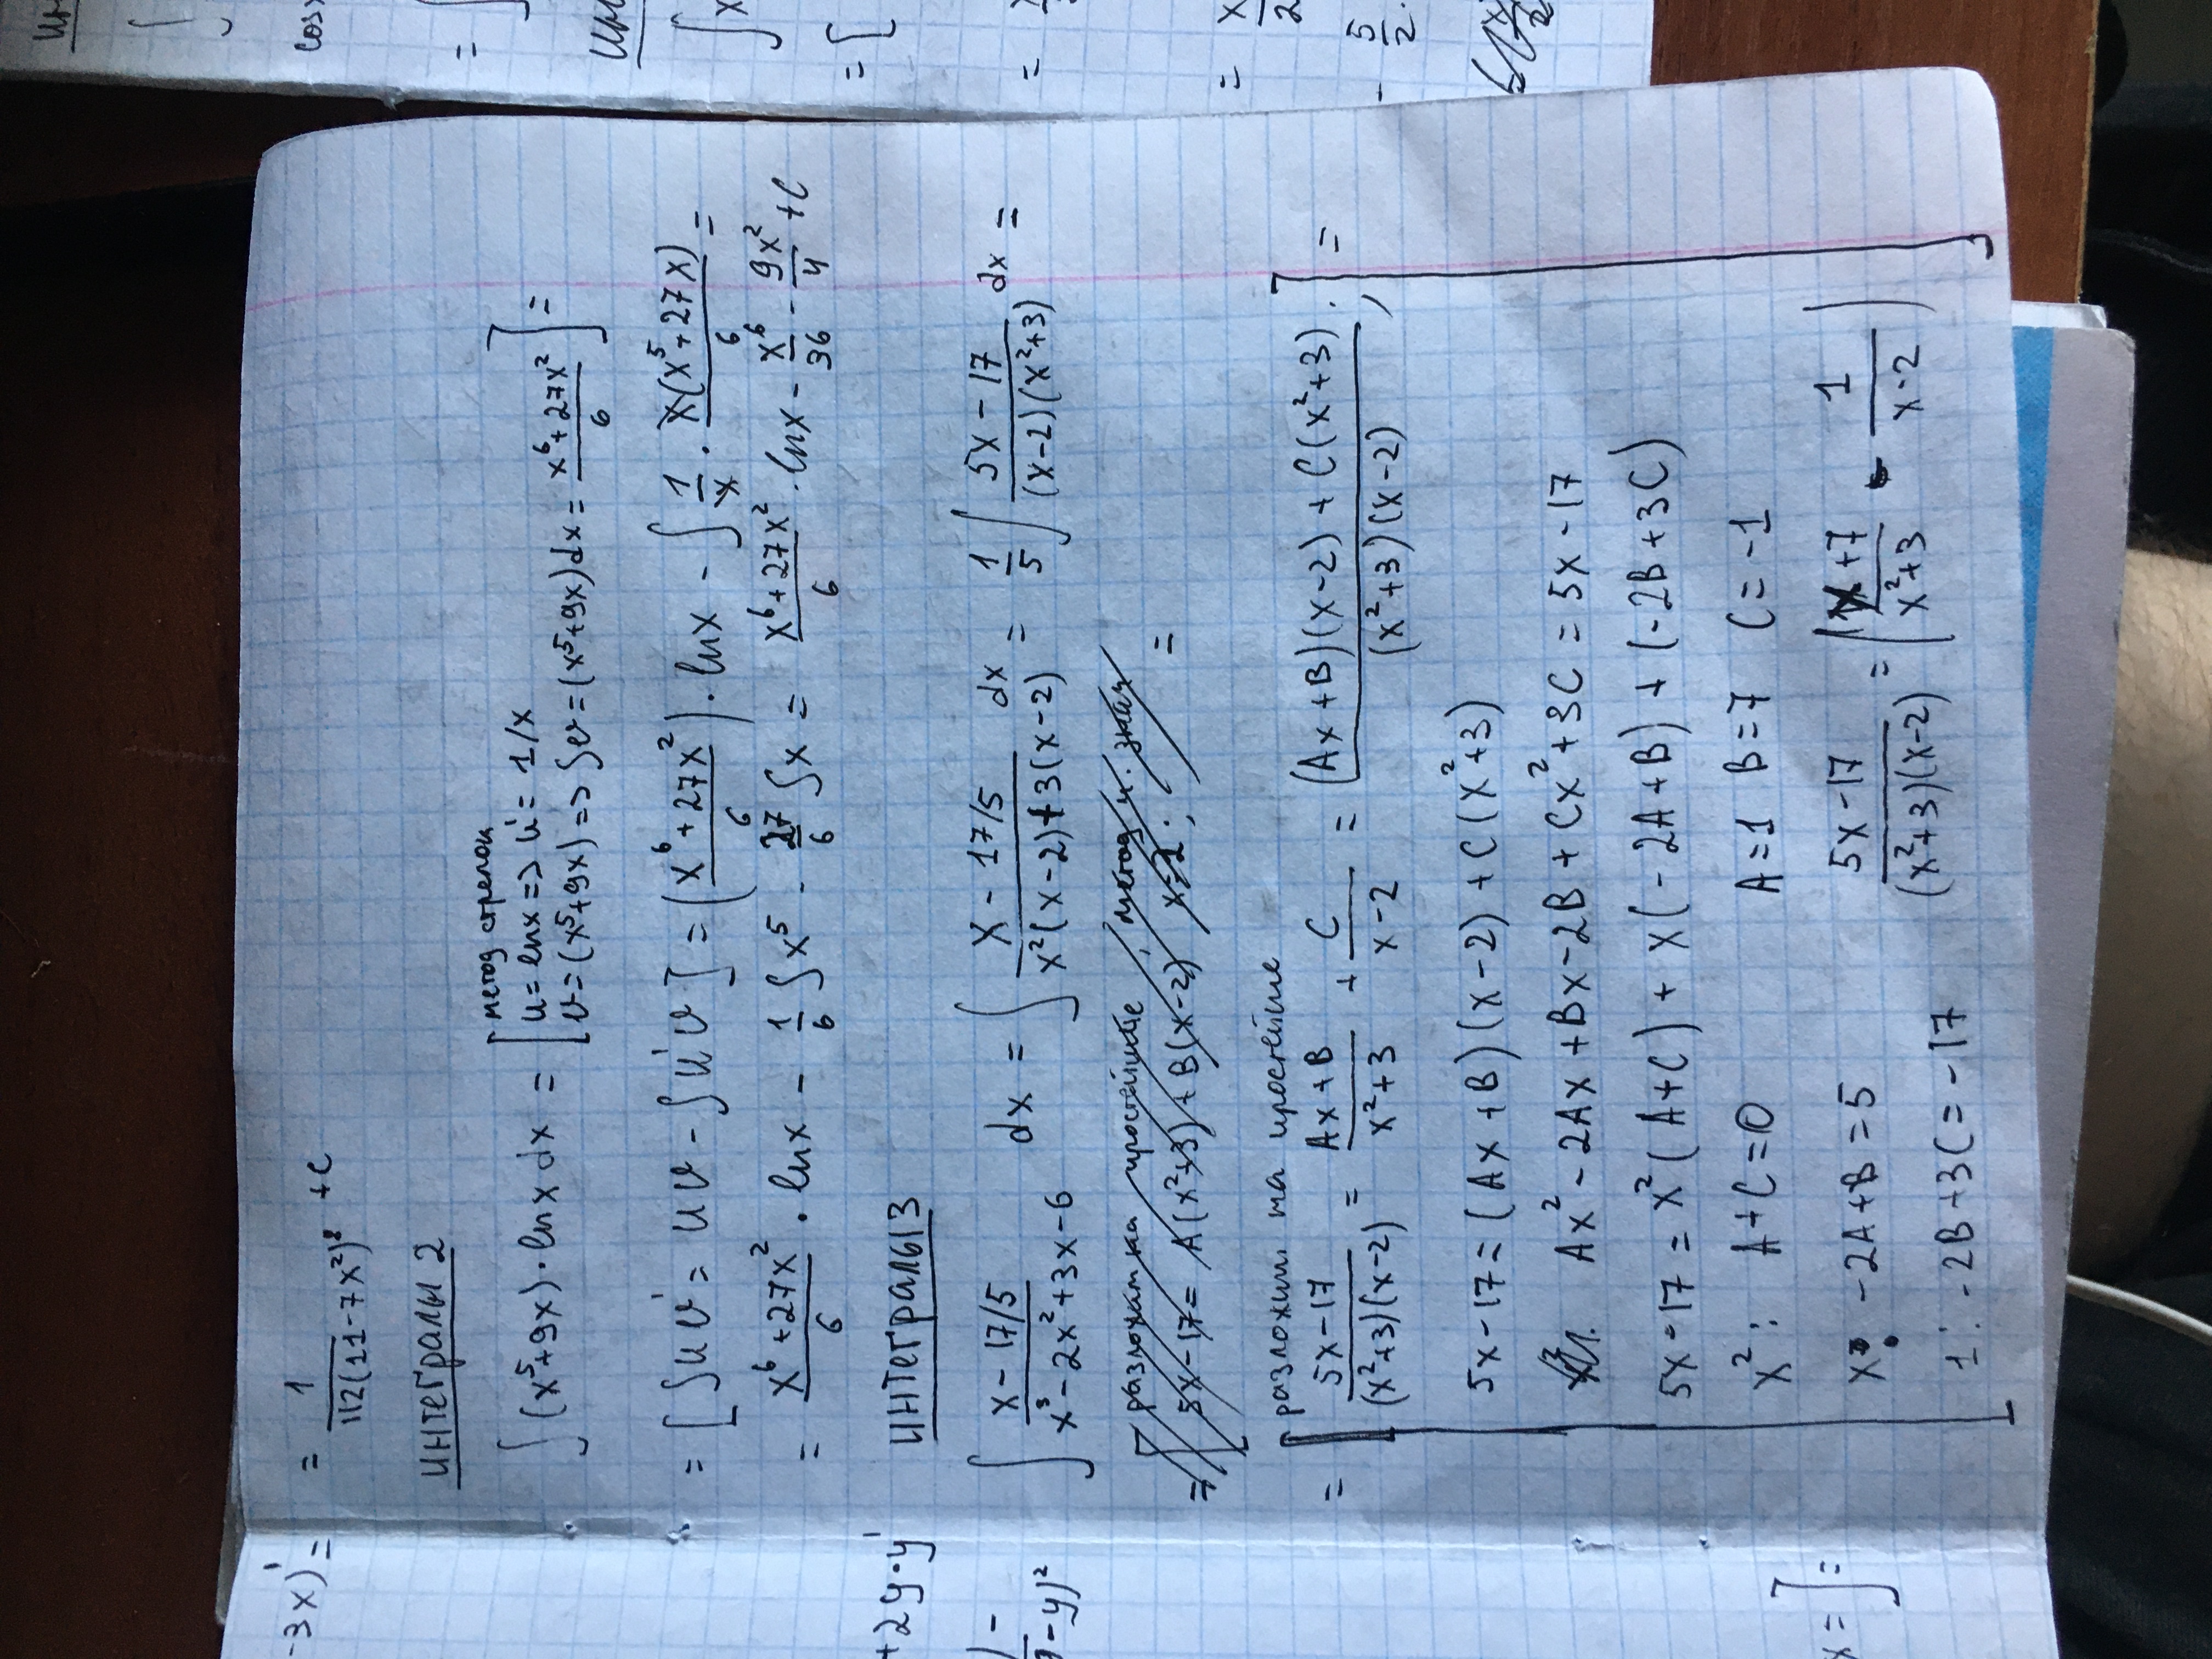 -3x)' =
= 1/(112(11-7x²)⁸) + c
интегралы 2
∫(x⁵+9x)·lnx dx = [метод стрелок
u = lnx => u' = 1/x
v = (x⁵+9x) => ∫v = (x⁵+9x)dx = (x⁶+27x²)/6 ] =
= [∫uv' = uv - ∫u'v] = ((x⁶+27x²)/6)·lnx - ∫ 1/x · x(x⁵+27x)/6 =
= (x⁶+27x²)/6 · lnx - 1/6 ∫x⁵ - 27/6 ∫x = (x⁶+27x²)/6 · lnx - x⁶/36 - 9x²/4 + C
+2y·y'
интегралы 3
∫ (x - 17/5)/(x³-2x²+3x-6) dx = ∫ (x - 17/5)/(x²(x-2)+3(x-2)) dx = 1/5 ∫ (5x-17)/((x-2)(x²+3)) dx =
-y)²
разложим на простейшие, метод н. знач
= [5x-17 = A(x²+3)+B(x-2) x=2; =
разложим на простейшие
= [(5x-17)/((x²+3)(x-2)) = (Ax+B)/(x²+3) + C/(x-2) = ((Ax+B)(x-2)+C(x²+3))/((x²+3)(x-2)); ] =
5x-17 = (Ax+B)(x-2)+C(x²+3)
Ax²-2Ax+Bx-2B+Cx²+3C = 5x-17
5x-17 = x²(A+C)+x(-2A+B)+(-2B+3C)
x²: A+C=0 A=1 B=7 C=-1
x: -2A+B=5 (5x-17)/((x²+3)(x-2)) = ((1x+7)/(x²+3) - 1/(x-2))
1: -2B+3C=-17
x = ] =
ин
cosx
=
ин
∫x
= [
=
= x/2
- 5/2·